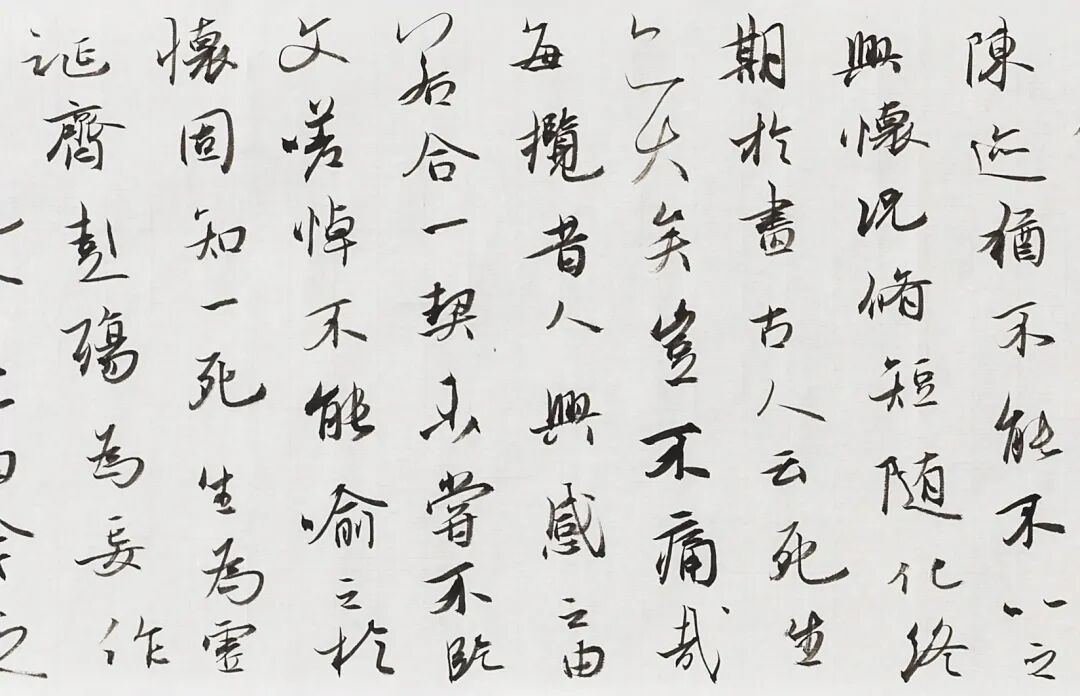 陳迹猶不能不以之
興懷況脩短随化終
期於盡古人云死生
亦大矣豈不痛哉
每攬昔人興感之由
若合一契未嘗不臨
文嗟悼不能喻之於
懷固知一死生為虛
誕齊彭殤為妄作